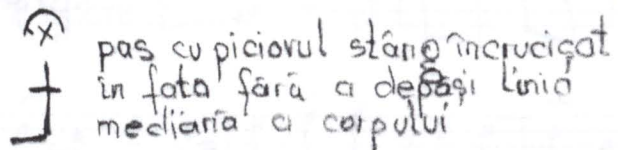 pas cu piciorul stâng încrucișat
în fața fără a depăși linia
mediana a corpului